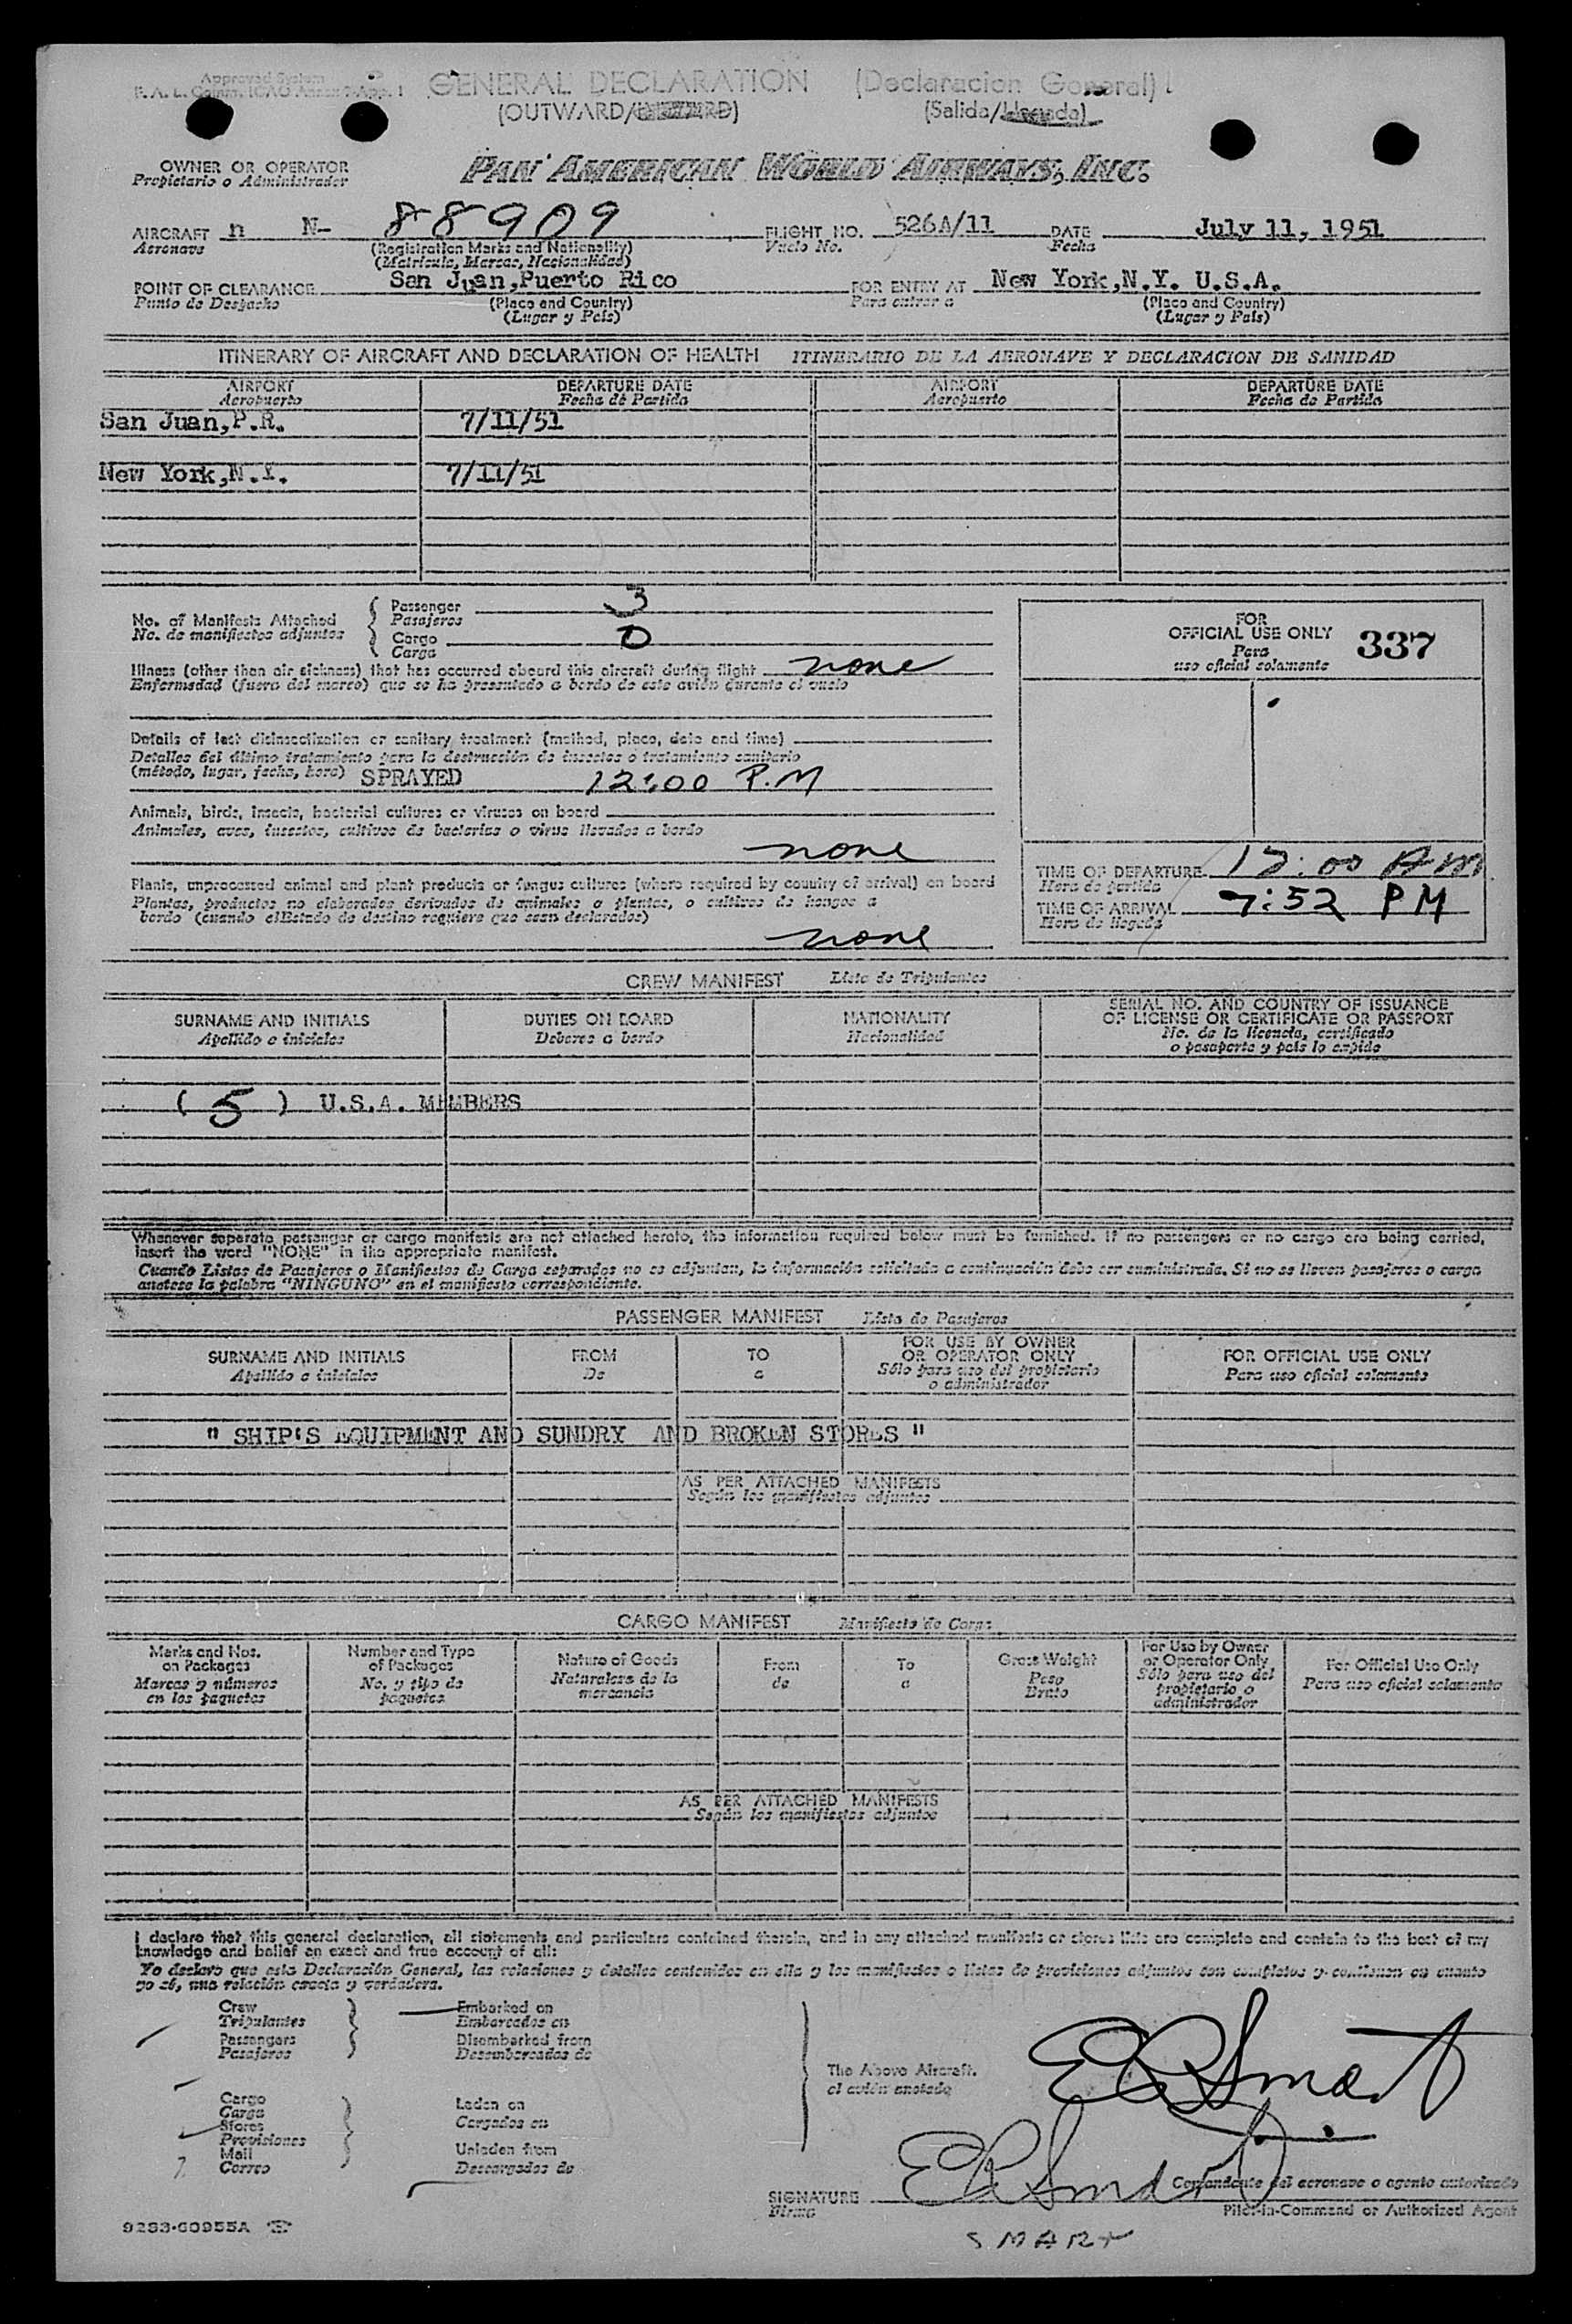 Approved System
F. A. L. Comm. ICAO Annex 9-App. 1
GENERAL DECLARATION (Declaracion General)
(OUTWARD/INWARD) (Salida/Llegada)
OWNER OR OPERATOR
Propietario o Administrador
PAN AMERICAN WORLD AIRWAYS, INC.
AIRCRAFT n N- 88909 FLIGHT NO. 526A/11 DATE July 11, 1951
Aeronave (Registration Marks and Nationality) Vuelo No. Fecha
(Matricula, Marcas, Nacionalidad)
POINT OF CLEARANCE San Juan,Puerto Rico FOR ENTRY AT New York,N.Y. U.S.A.
Punto de Despacho (Place and Country) Para entrar a (Place and Country)
(Lugar y País) (Lugar y País)
ITINERARY OF AIRCRAFT AND DECLARATION OF HEALTH ITINERARIO DE LA AERONAVE Y DECLARACION DE SANIDAD
AIRPORT DEPARTURE DATE AIRPORT DEPARTURE DATE
Aeropuerto Fecha de Partida Aeropuerto Fecha de Partida
San Juan,P.R. 7/11/51
New York,N.Y. 7/11/51
No. of Manifests Attached Passenger 3
No. de manifiestos adjuntos Pasajeros
Cargo 0
Carga
Illness (other than air sickness) that has occurred aboard this aircraft during flight none
Enfermedad (fuera del mareo) que se ha presentado a bordo de este avión durante el vuelo
Details of last disinsectization or sanitary treatment (method, place, date and time)
Detalles del último tratamiento para la destrucción de insectos o tratamiento sanitario
(método, lugar, fecha, hora) SPRAYED 12:00 P.M
Animals, birds, insects, bacterial cultures or viruses on board
Animales, aves, insectos, cultivos de bacterias o virus llevados a bordo
none
Plants, unprocessed animal and plant products or fungus cultures (where required by country of arrival) on board
Plantas, productos no elaborados derivados de animales o plantas, o cultivos de hongos a
bordo (cuando el Estado de destino requiere que sean declarados)
none
FOR
OFFICIAL USE ONLY 337
Para
uso oficial solamente
TIME OF DEPARTURE 12:00 AM
Hora de partida
TIME OF ARRIVAL 7:52 PM
Hora de llegada
CREW MANIFEST Lista de Tripulantes
SURNAME AND INITIALS DUTIES ON BOARD NATIONALITY SERIAL NO. AND COUNTRY OF ISSUANCE
OF LICENSE OR CERTIFICATE OR PASSPORT
Apellido e iniciales Deberes a bordo Nacionalidad No. de la licencia, certificado
o pasaporte y país lo expide
( 5 ) U.S.A. MEMBERS
Whenever separate passenger or cargo manifests are not attached hereto, the information required below must be furnished. If no passengers or no cargo are being carried,
insert the word "NONE" in the appropriate manifest.
Cuando Listas de Pasajeros o Manifiestos de Carga separados no se adjuntan, la información solicitada a continuación debe ser suministrada. Si no se llevan pasajeros o carga
anotese la palabra "NINGUNO" en el manifiesto correspondiente.
PASSENGER MANIFEST Lista de Pasajeros
SURNAME AND INITIALS FROM TO FOR USE BY OWNER FOR OFFICIAL USE ONLY
OR OPERATOR ONLY
Apellido e iniciales De a Sólo para uso del propietario Para uso oficial solamente
o administrador
" SHIP'S EQUIPMENT AND SUNDRY AND BROKEN STORES "
AS PER ATTACHED MANIFESTS
Según los manifiestos adjuntos
CARGO MANIFEST Manifiesto de Carga
Marks and Nos. Number and Type Nature of Goods From To Gross Weight For Use by Owner For Official Use Only
on Packages of Packages or Operator Only
Marcas y números No. y tipo de Naturaleza de la de a Peso Sólo para uso del Para uso oficial solamente
en los paquetes paquetes mercancía Bruto propietario o
administrador
AS PER ATTACHED MANIFESTS
Según los manifiestos adjuntos
I declare that this general declaration, all statements and particulars contained therein, and in any attached manifests or stores lists are complete and contain to the best of my
knowledge and belief an exact and true account of all:
Yo declaro que esta Declaración General, las relaciones y detalles contenidos en ella y los manifiestos o listas de provisiones adjuntos son completos y contienen en cuanto
yo sé, una relación exacta y verdadera.
Crew Embarked on
Tripulantes Embarcados en
Passengers Disembarked from
Pasajeros Desembarcados de
The Above Aircraft.
el avión anotado
Cargo Laden on
Carga Cargados en
Stores
Provisiones
Mail Unladen from
Correo Descargados de
E R Smart
E R Smart
Comandante del aeronave o agente autorizado
SIGNATURE
Firma
Pilot-in-Command or Authorized Agent
9283-60955A
SMART